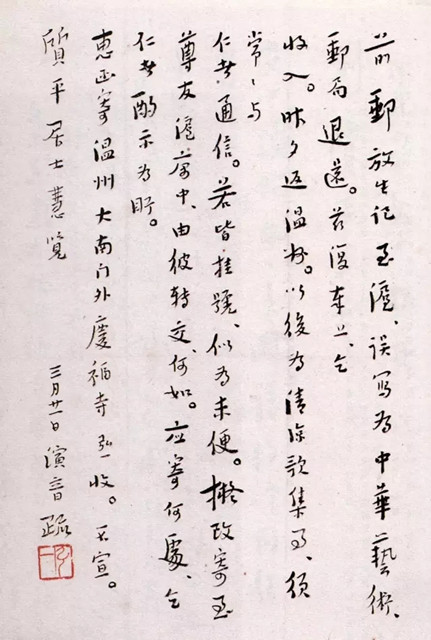 前郵放生記至滬、誤寫為中華藝術、
郵局退還。茲復奉上、乞
收入。昨夕返溫州。以後為清涼歌集事、須
常々与
仁者通信。若皆挂號、似為未便。擬改寄至
尊友滬寓中、由彼轉交、何如。應寄何處、乞
仁者酌示為盼。
惠函寄溫州大南门外慶福寺弘一收。不宣。
質平居士慧覽 三月廿一日 演音疏